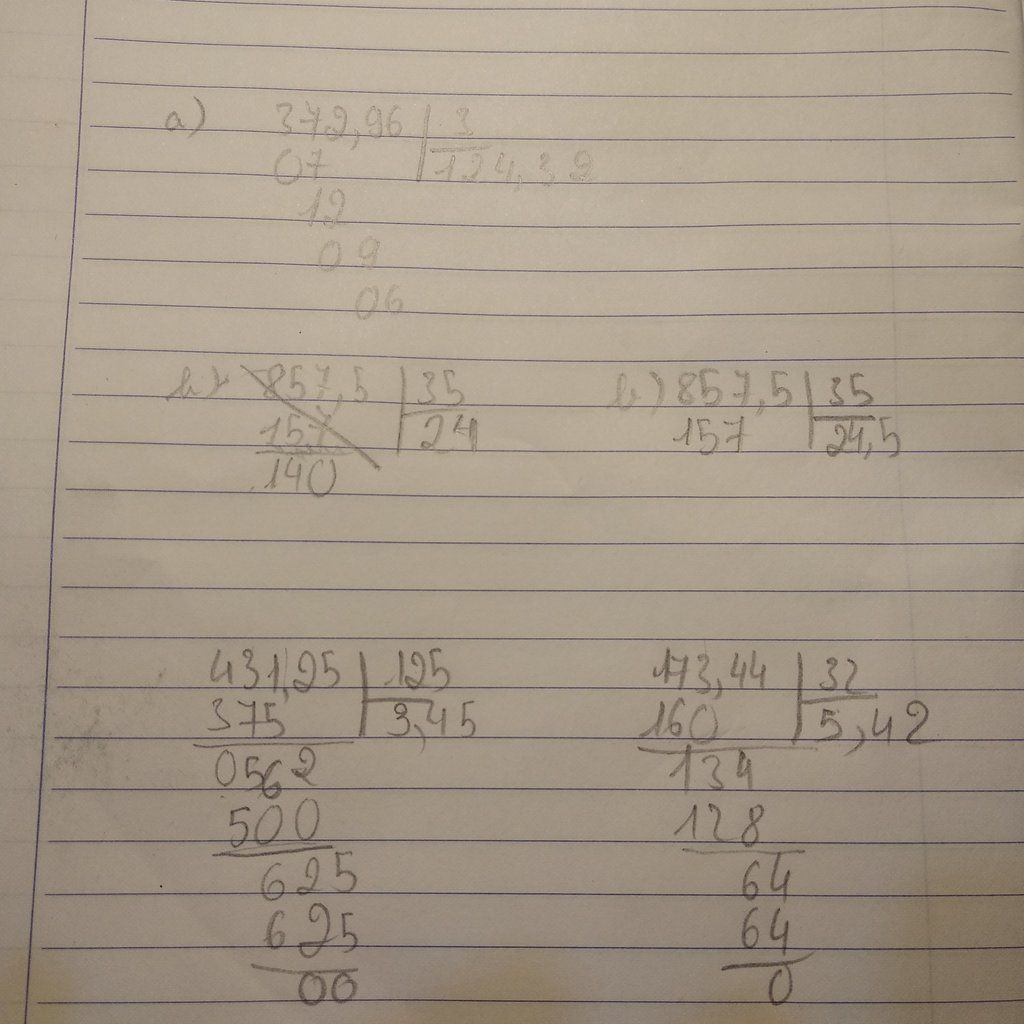 a) 372,96 | 3
07 124,32
12
09
06
b) 857,5 | 35
157 24
140
b) 857,5 | 35
157 24,5
431,25 | 125
375 3,45
0562
500
625
625
00
173,44 | 32
160 5,42
134
128
64
64
0